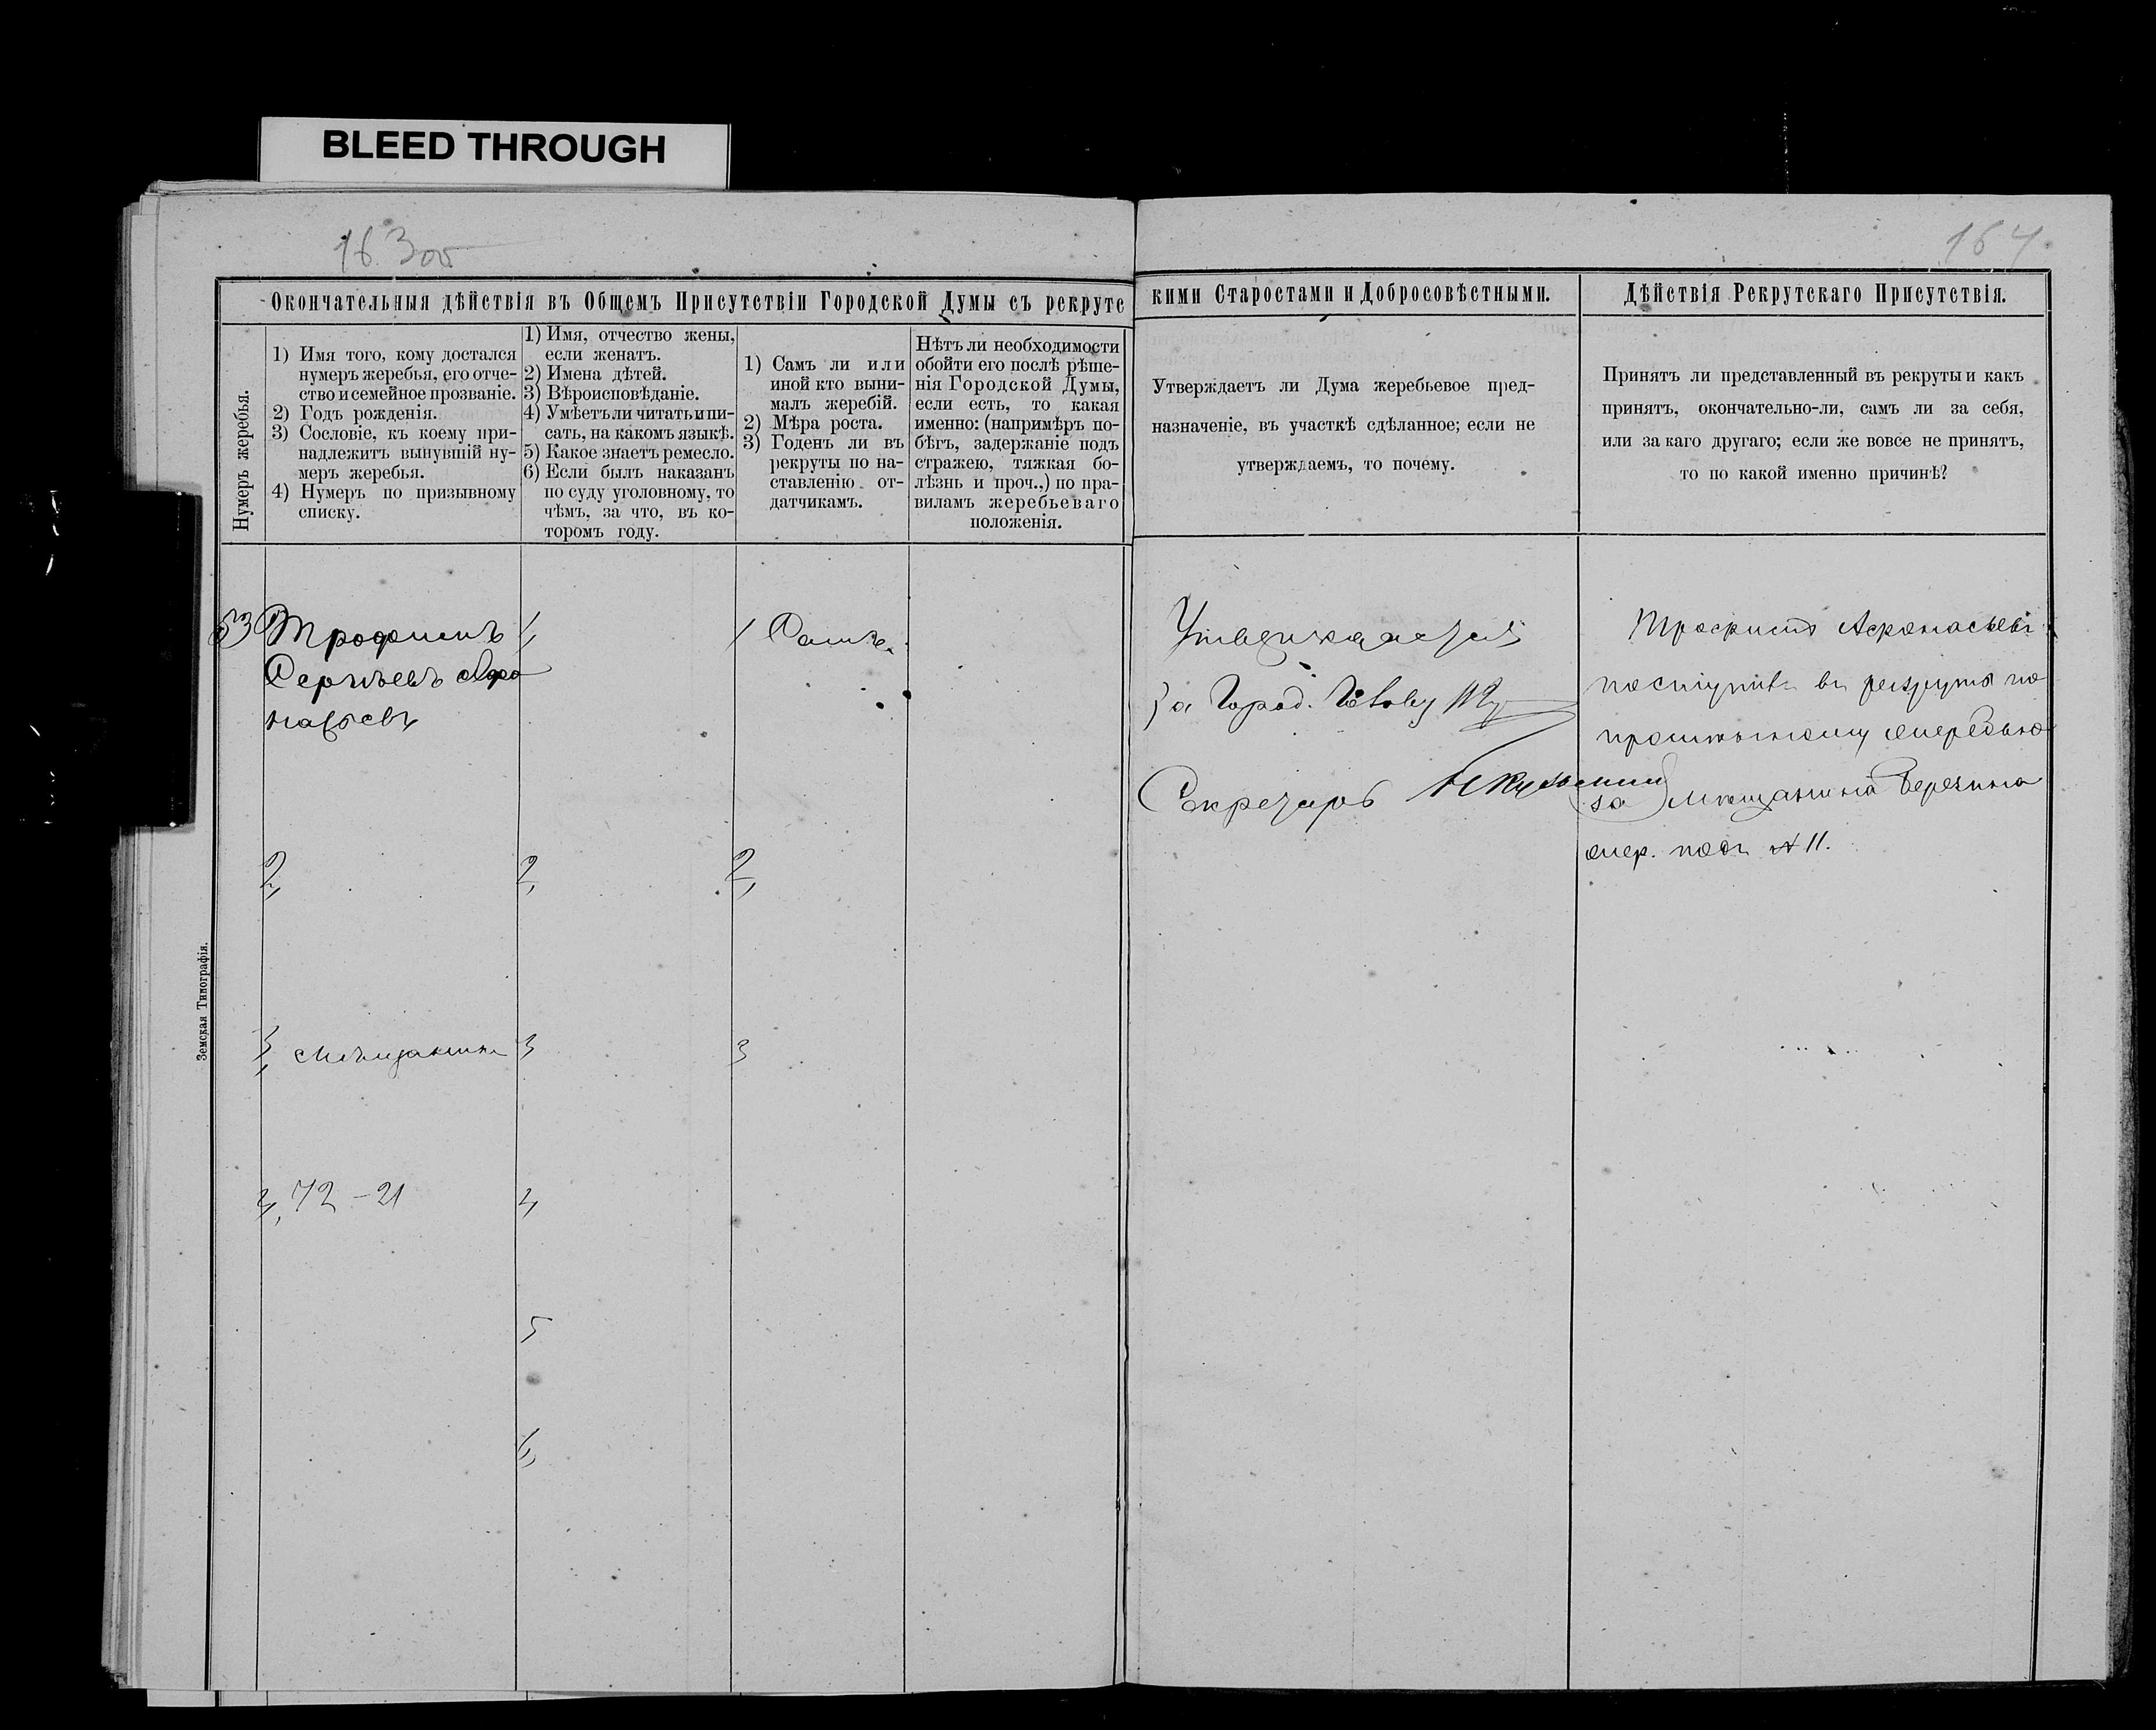 BLEED THROUGH
163 об
164
Окончательныя дѣйствія въ Общемъ Присутствіи Городской Думы съ рекрутс
кими Старостами и Добросовѣстными.
Дѣйствія Рекрутскаго Присутствія.
Нумеръ жеребья.
1) Имя того, кому достался
нумеръ жеребья, его отче-
ство и семейное прозваніе.
2) Годъ рожденія.
3) Сословіе, къ коему при-
надлежитъ вынувшій ну-
меръ жеребья.
4) Нумеръ по призывному
списку.
1) Имя, отчество жены,
если женатъ.
2) Имена дѣтей.
3) Вѣроисповѣданіе.
4) Умѣетъ ли читать и пи-
сать, на какомъ языкѣ.
5) Какое знаетъ ремесло.
6) Если былъ наказанъ
по суду уголовному, то
чѣмъ, за что, въ ко-
торомъ году.
1) Самъ ли или
иной кто выни-
малъ жеребій.
2) Мѣра роста.
3) Годенъ ли въ
рекруты по на-
ставленію от-
датчикамъ.
Нѣтъ ли необходимости
обойти его послѣ рѣше-
нія Городской Думы,
если есть, то какая
именно: (напримѣръ по-
бѣгъ, задержаніе подъ
стражею, тяжкая бо-
лѣзнь и проч.,) по пра-
виламъ жеребьеваго
положенія.
Утверждаетъ ли Дума жеребьевое пред-
назначеніе, въ участкѣ сдѣланное; если не
утверждаемъ, то почему.
Принятъ ли представленный въ рекруты и какъ
принятъ, окончательно-ли, самъ ли за себя,
или за каго другаго; если же вовсе не принятъ,
то по какой именно причинѣ?
53 Трофимъ
Сергѣевъ Афо
насьевъ
2,
3, Мѣщанинъ
4, 72 - 21
1,
2,
3
4,
5
6,
1 Самъ.
2,
3
Утверждается
За Город. Голову
Секретарь
Трофимъ Афонасьевъ
поступилъ въ рекруты по
промѣнному очередью
за Мѣщанина Березина
очер. подъ № 11.
Земская Типографія.